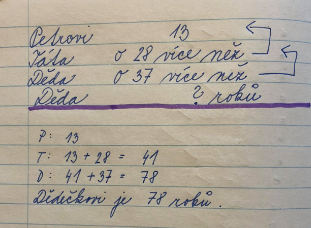 Petrovi 13
Táta o 28 více než
Děda o 37 více než
Děda ? roků
P: 13
T: 13 + 28 = 41
D: 41 + 37 = 78
Dědečkovi je 78 roků.